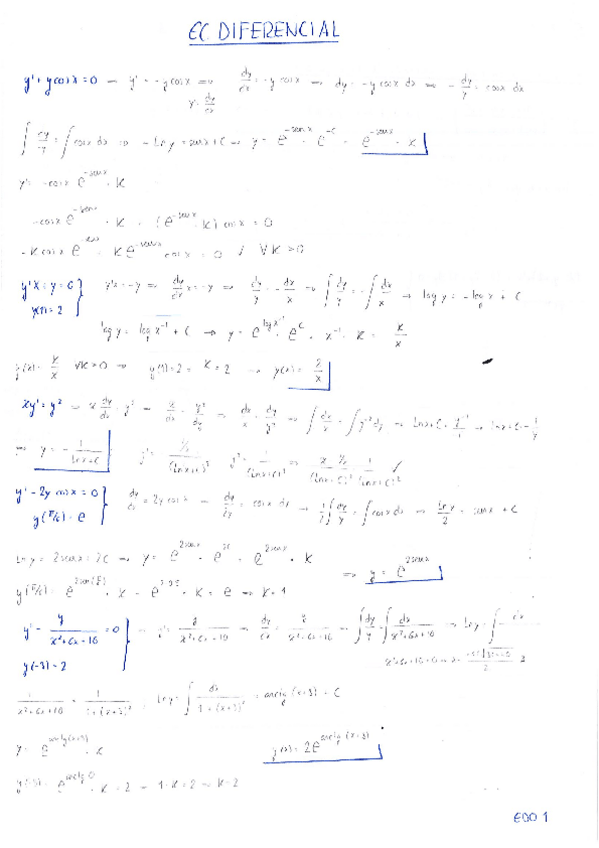 EC DIFERENCIAL
y' + y cos x = 0 → y' = -y cos x ⇒ dy/dx = -y cos x → dy = -y cos x dx ⇒ -dy/y = cos x dx
y' = dy/dx
∫ dy/y = ∫ cos x dx ⇒ -Ln y = sen x + C → y = e^{-sen x} · e^{-C} = e^{-sen x} · K
y' = -cos x e^{-sen x} · K
-cos x e^{-sen x} · K + (e^{-sen x} · K) cos x = 0
-K cos x e^{-sen x} + K e^{-sen x} cos x = 0 / ∀K > 0
y'x + y = 0
y(1) = 2
y'x = -y ⇒ dy/dx x = -y ⇒ dy/y = -dx/x ⇒ ∫ dy/y = -∫ dx/x → log y = -log x + C
log y = log x^{-1} + C → y = e^{log x^{-1}} · e^{C} = x^{-1} · K = K/x
y(x) = K/x ∀K > 0 ⇒ y(1) = 2 = K = 2 → y(x) = 2/x
xy' = y² → x dy/dx = y² → ⇒ dx/x = dy/y² ⇒ ∫ dx/x = ∫ y^{-2} dy → Ln x + C = → Ln x + C = -1/y
⇒ y = -1/(Ln x + C)
y' - 2y cos x = 0
y(π/6) = e
dy/dx = 2y cos x → dy/2y = cos x dx → 1/2 ∫ dy/y = ∫ cos x dx ⇒ Ln y/2 = sen x + C
Ln y = 2 sen x + 2C → y = e^{2 sen x} · e^{2C} = e^{2 sen x} · K
⇒ y = e^{2 sen x}
y(π/6) = e^{2 sen(π/6)} · K = e^{2·0.5} · K = e ⇒ K = 1
y' - y/(x² + 6x + 10) = 0
y(-3) = 2
y' = y/(x² + 6x + 10) ⇒ dy/dx = y/(x² + 6x + 10) → ∫ dy/y = ∫ dx/(x² + 6x + 10) → Ln y = ∫
1/(x² + 6x + 10) = 1/(1 + (x+3)²) , Ln y = ∫ dx/(1 + (x+3)²) = arctg (x+3) + C
y = e^{arctg(x+3)} · K
y(x) = 2e^{arctg (x+3)}
y(-3) = e^{arctg 0} · K = 2 → 1·K = 2 → K = 2
EDO 1